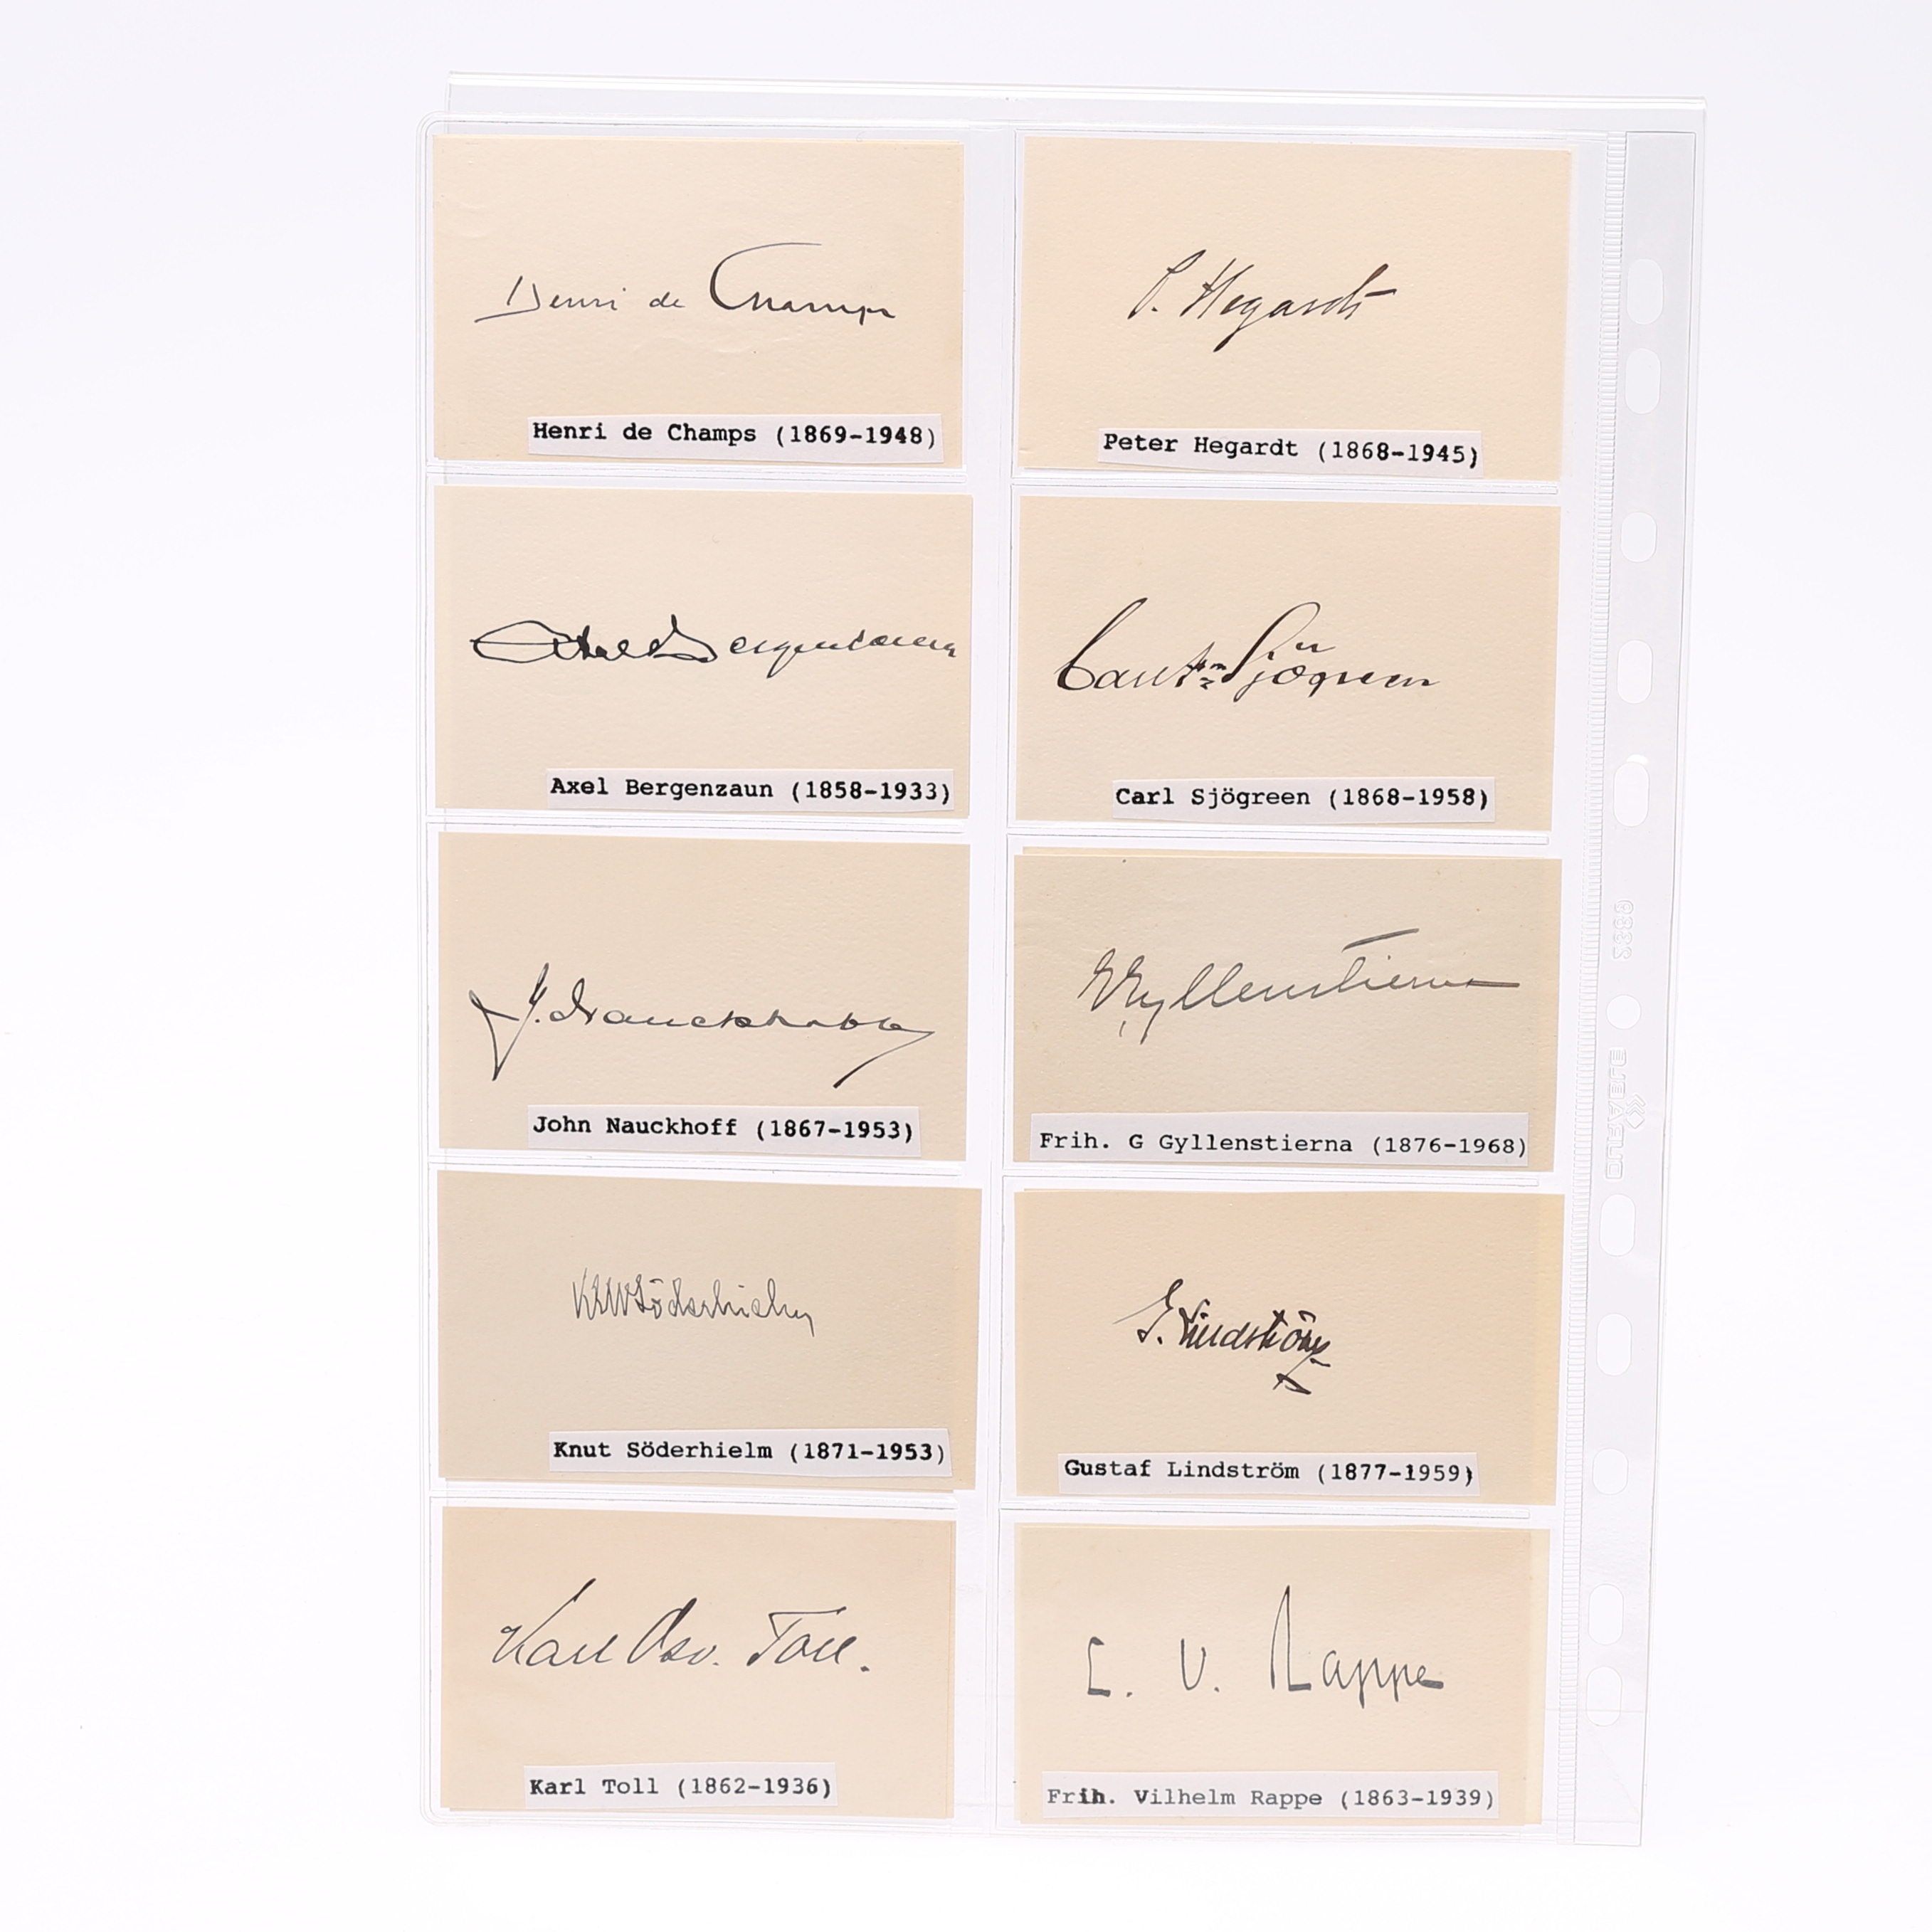 Henri de Champs
Henri de Champs (1869-1948)
P. Hegardt
Peter Hegardt (1868-1945)
Axel Bergenzaun
Axel Bergenzaun (1858-1933)
Carl Sjögreen
Carl Sjögreen (1868-1958)
J. Nauckhoff
John Nauckhoff (1867-1953)
GGyllenstierna
Frih. G Gyllenstierna (1876-1968)
Söderhielm
Knut Söderhielm (1871-1953)
G. Lindström
Gustaf Lindström (1877-1959)
Karl Osv. Toll.
Karl Toll (1862-1936)
C. V. Rappe
Frih. Vilhelm Rappe (1863-1939)
DURABLE